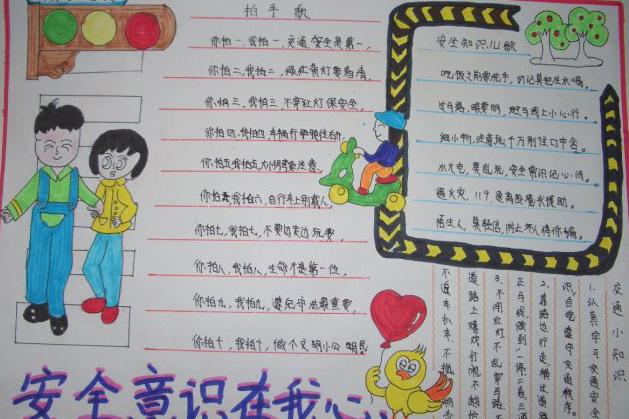 拍手歌
你拍一,我拍一,交通安全是第一,
你拍二,我拍二,
你拍三,我拍三,不穿红灯保安全,
你拍四,我拍四,车辆行
你拍五,我拍五,
我拍六,自行车上别载人,
你拍七,我拍七,不要边走边玩耍,
你拍八,我拍八,生命才是第一位,
你拍九,我拍九,遵纪守法最重要,
你拍十,我拍十,做个文明小公民
安全知识儿歌
吃饭之前要洗手,切记莫把生水喝。
过马路,眼要明,斑马线上小心行。
细小物,注意玩,千万别往口中含。
水火电,莫乱玩,安全常识记心间。
遇火灾,119,
陌生人,莫轻信,防止坏人将你骗。
交通小知识
1.认真学习交通安全
识,自觉遵守交通秩序。
2.着路边行走横过道
3.不闯红灯不乱穿马路不
道路上嬉戏打闹不
不追车扒车不抛
安全意识在我心